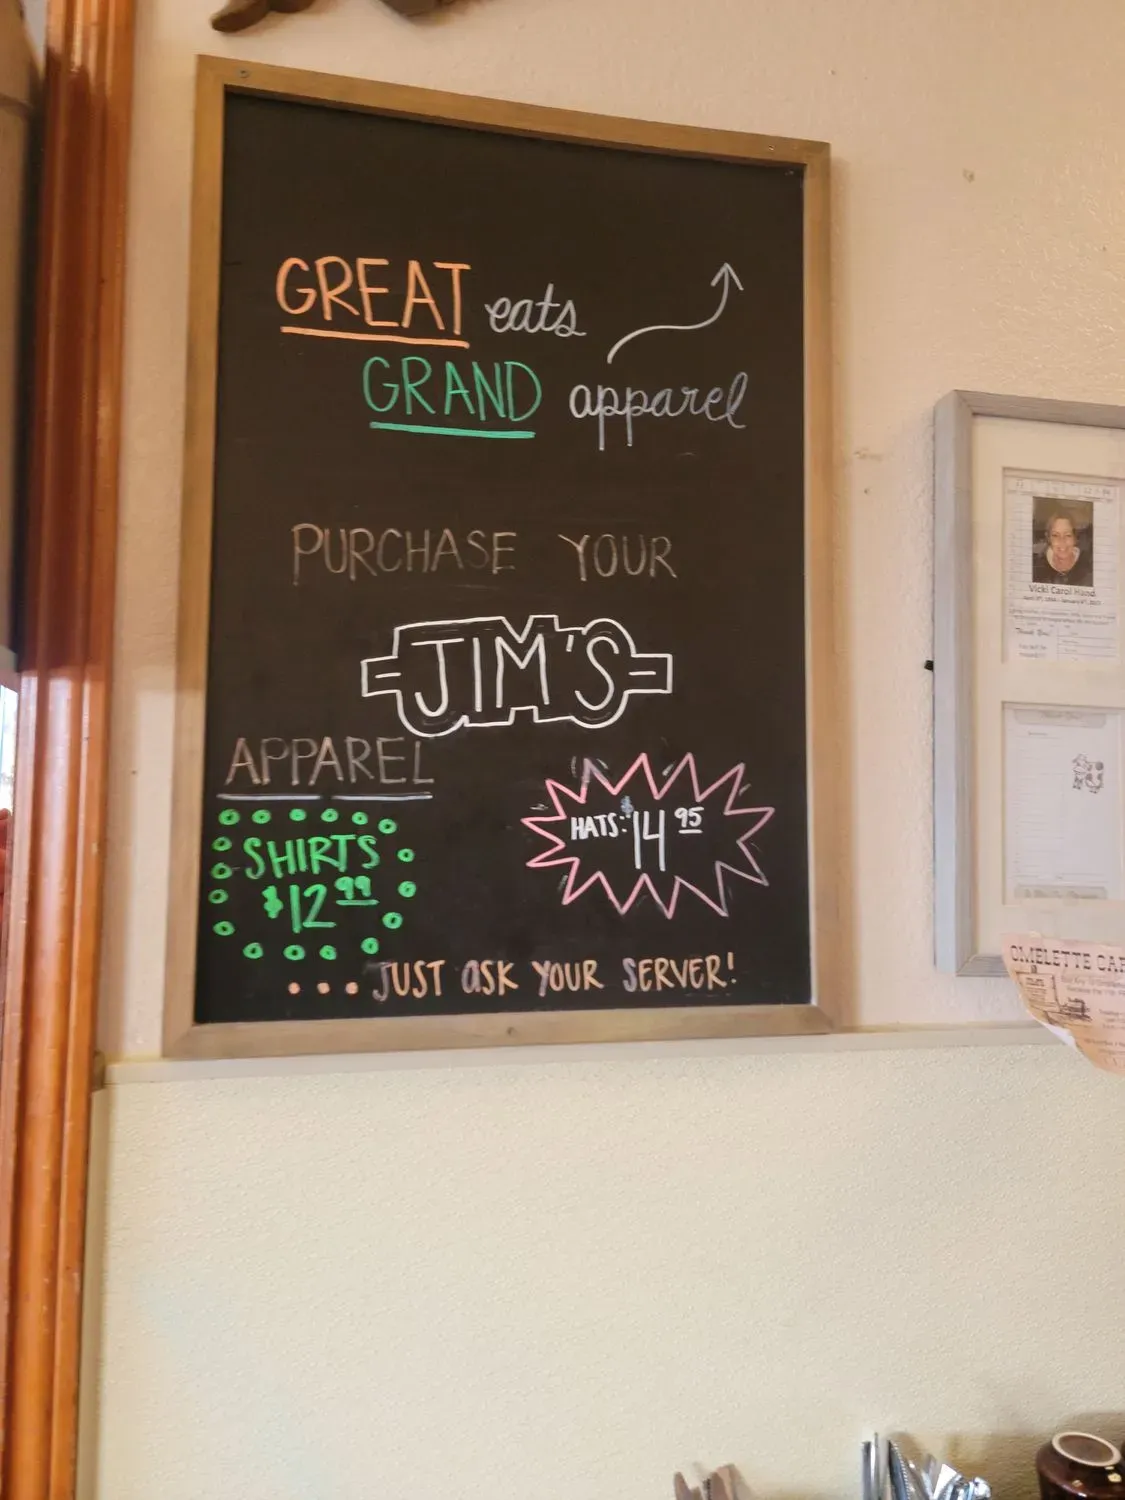 GREAT eats
GRAND apparel
PURCHASE YOUR
JIM'S
APPAREL
SHIRTS
$12.99
HATS: $14 95
... JUST ASK YOUR SERVER!
Vicki Carol Hand
Thank You!
OMELETTE